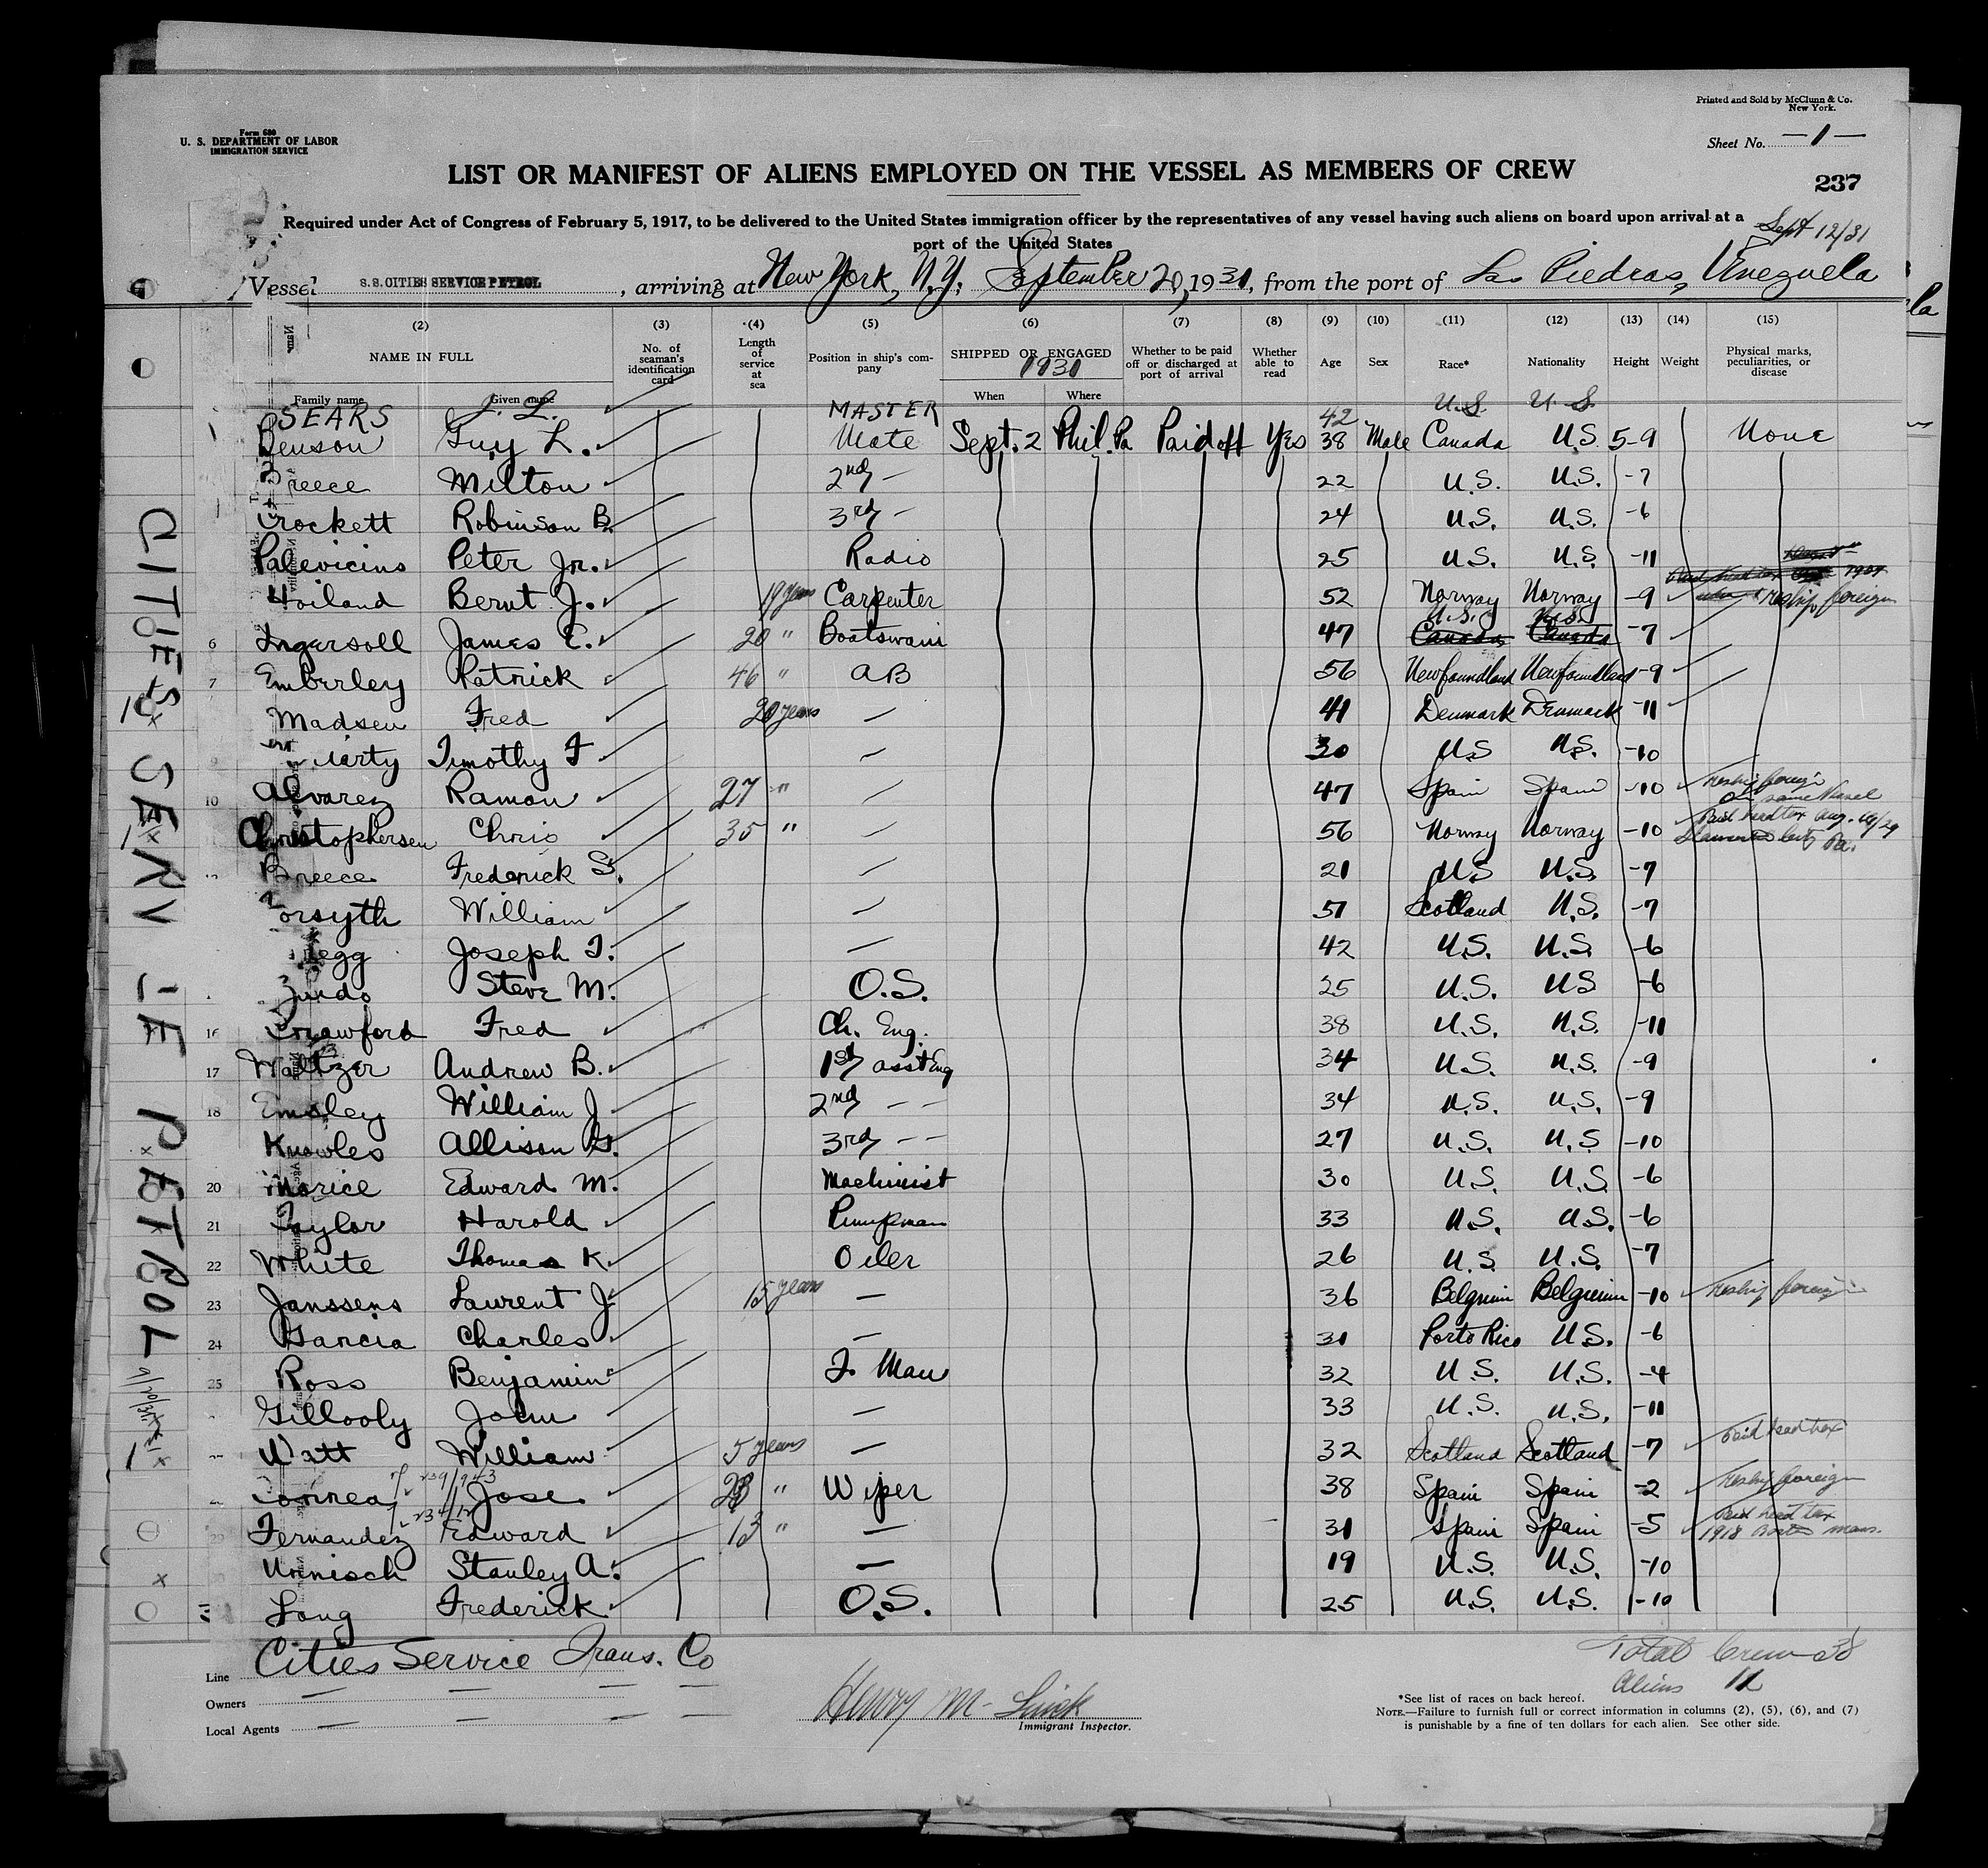 Printed and Sold by McClunn & Co.
New York.
Form 680
U. S. DEPARTMENT OF LABOR
IMMIGRATION SERVICE
Sheet No. —1—
LIST OR MANIFEST OF ALIENS EMPLOYED ON THE VESSEL AS MEMBERS OF CREW
237
Required under Act of Congress of February 5, 1917, to be delivered to the United States immigration officer by the representatives of any vessel having such aliens on board upon arrival at a
port of the United States
Sept 12/31
Vessel S.S. CITIES SERVICE PETROL, arriving at New York, N.Y. September 20, 1931, from the port of Las Piedras, Venezuela
(2) (3) (4) (5) (6) (7) (8) (9) (10) (11) (12) (13) (14) (15)
NAME IN FULL No. of seaman's identification card Length of service at sea Position in ship's company SHIPPED OR ENGAGED 1931 Whether to be paid off or discharged at port of arrival Whether able to read Age Sex Race* Nationality Height Weight Physical marks, peculiarities, or disease
Family name Given name When Where
SEARS J. L. MASTER 42 U.S. U.S.
Benson Guy L. Mate Sept. 2 Phil. Pa Paid off Yes 38 Male Canada U.S. 5-9 None
Breece Milton 2nd — 22 U.S. U.S. -7
Crockett Robinson B. 3rd — 24 U.S. U.S. -6
Palevicius Peter Jr. Radio 25 U.S. U.S. -11
Hoiland Bernt J. 19 years Carpenter 52 Norway Norway -9 reship foreign
6 Ingersoll James E. 20 " Boatswain 47 U.S. U.S. Canada Canada -7
7 Emberley Patrick 46 " AB 56 Newfoundland Newfoundland -9
Madsen Fred 20 years — 41 Denmark Denmark -11
9 Timothy F — 30 U.S U.S. -10
10 Alvarez Ramon 27 " — 47 Spain Spain -10 Reship foreign on same vessel
Christophersen Chris 35 " — 56 Norway Norway -10 Paid head tax Aug. Pa.
Breece Frederick S. — 21 U.S U.S. -7
Forsyth William — 51 Scotland U.S. -7
Joseph T. — 42 U.S. U.S. -6
Steve M. O.S. 25 U.S. U.S -6
16 Crawford Fred Ch. Eng. 38 U.S. U.S. -11
17 Waltzer Andrew B. 1st asst Eng 34 U.S. U.S. -9
18 Emsley William J 2nd — — 34 U.S. U.S. -9
Knowles Allison G. 3rd — — 27 U.S. U.S -10
20 Marice Edward M. Machinist 30 U.S. U.S. -6
21 Taylor Harold Pumpman 33 U.S. U.S. -6
22 White Thomas K. Oiler 26 U.S. U.S. -7
23 Janssens Laurent J. 15 years — 36 Belgium Belgium -10 Reship foreign
24 Garcia Charles — 31 Porto Rico U.S. -6
25 Ross Benjamin F. Man 32 U.S. U.S. -4
Gillooly John — 33 U.S. U.S. -11
Watt William 5 years — 32 Scotland Scotland -7 Paid head tax
Correa Jose " Wiper 38 Spain Spain -2 Reship foreign
29 Fernandez Edward 13 " — 31 Spain Spain -5 Paid head tax 1918 Boston Mass.
Stanley A. — 19 U.S. U.S. -10
Long Frederick O.S. 25 U.S. U.S. -10
CITIES SERVICE PETROL
9/20/31
Total Crew 38
Aliens 11
Line Cities Service Trans. Co
Owners — — — —
Local Agents — — — —
Henry M.
Immigrant Inspector.
*See list of races on back hereof.
NOTE.—Failure to furnish full or correct information in columns (2), (5), (6), and (7)
is punishable by a fine of ten dollars for each alien. See other side.